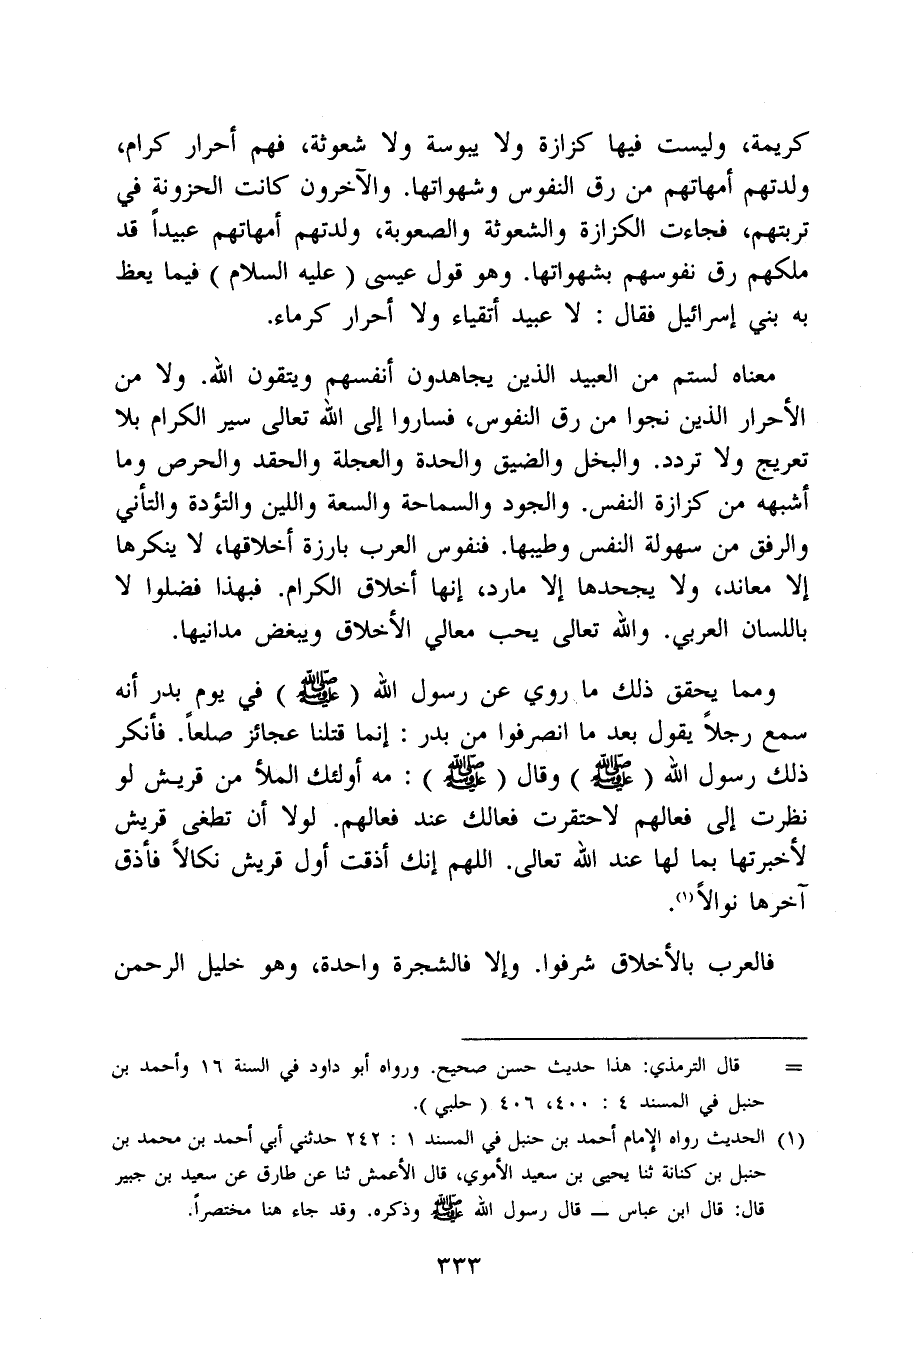 كريمة، وليست فيها كزازة ولا يبوسة ولا شعوثة، فهم أحرار كرام،
ولدتهم أمهاتهم من رق النفوس وشهواتها. والآخرون كانت الحزونة في
تربتهم، فجاءت الكزازة والشعوثة والصعوبة، ولدتهم أمهاتهم عبيداً قد
ملكهم رق نفوسهم بشهواتها. وهو قول عيسى ( عليه السلام ) فيما يعظ
به بني إسرائيل فقال : لا عبيد أتقياء ولا أحرار كرماء.
معناه لستم من العبيد الذين يجاهدون أنفسهم ويتقون الله. ولا من
الأحرار الذين نجوا من رق النفوس، فساروا إلى الله تعالى سير الكرام بلا
تعريج ولا تردد. والبخل والضيق والحدة والعجلة والحقد والحرص وما
أشبهه من كزازة النفس. والجود والسماحة والسعة واللين والتؤدة والتأني
والرفق من سهولة النفس وطيبها. فنفوس العرب بارزة أخلاقها، لا ينكرها
إلا معاند، ولا يجحدها إلا مارد، إنها أخلاق الكرام. فبهذا فضلوا لا
باللسان العربي. والله تعالى يحب معالي الأخلاق ويبغض مدانيها.
ومما يحقق ذلك ما روي عن رسول الله ( ﷺ ) في يوم بدر أنه
سمع رجلاً يقول بعد ما انصرفوا من بدر : إنما قتلنا عجائز صلعاً. فأنكر
ذلك رسول الله ( ﷺ ) وقال ( ﷺ ) : مه أولئك الملأ من قريش لو
نظرت إلى فعالهم لاحتقرت فعالك عند فعالهم. لولا أن تطغى قريش
لأخبرتها بما لها عند الله تعالى. اللهم إنك أذقت أول قريش نكالاً فأذق
آخرها نوالاً(١).
فالعرب بالأخلاق شرفوا. وإلا فالشجرة واحدة، وهو خليل الرحمن
= قال الترمذي: هذا حديث حسن صحيح. ورواه أبو داود في السنة ١٦ وأحمد بن
حنبل في المسند ٤ : ٤٠٠، ٤٠٦ ( حلبي ).
(١) الحديث رواه الإمام أحمد بن حنبل في المسند ١ : ٢٤٢ حدثني أبي أحمد بن محمد بن
حنبل بن كنانة ثنا يحيى بن سعيد الأموي، قال الأعمش ثنا عن طارق عن سعيد بن جبير
قال: قال ابن عباس ــ قال رسول الله ﷺ وذكره. وقد جاء هنا مختصراً.
٣٣٣